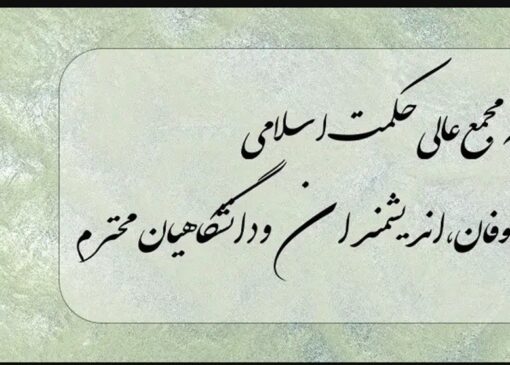 مجمع عالی حکمت اسلامی
اندیشمندان و دانشگاهیان محترم